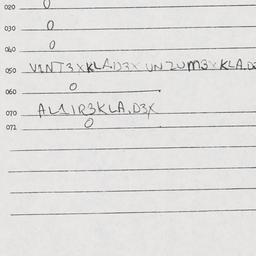 020 0
030 0
040 0
050 V1NT3XKLA.D3X UNZUM3XKLA.D3
060 0
070 AL1IR3KLA.D3X
071 0